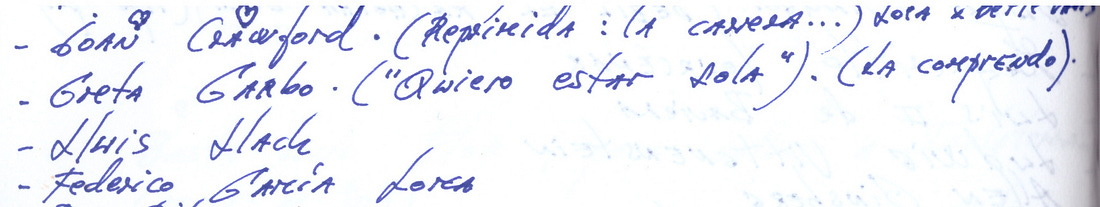 - Joan Crawford. (Reprimida: la carrera...) Loca x
- Greta Garbo. ("Quiero estar sola"). (La comprendo).
- Lluis Llach
- Federico García Lorca